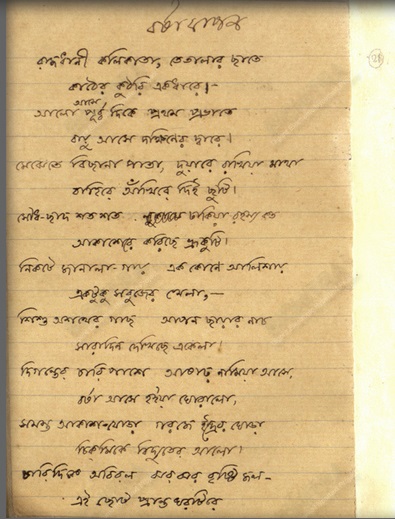 বর্ষা যাপন
রাজধানী কলিকাতা, তেতালার ছাতে
কাঠের কুঠরি একধারে;—
আলো আসে পূর্ব্ব দিকে প্রথম প্রভাতে
বায়ু আসে দক্ষিণের দ্বারে।
মেঝেতে বিছানা পাতা, দুয়ারে রাখিয়া মাথা
বাহিরে আঁখিরে দিই ছুটি।
সৌধ-ছাদ শত শত ঢাকিয়া রহস্য কত
আকাশেরে করিছে ভ্রূকুটি।
নিকটে জানালা-গায় এক কোণে আলিশায়
একটুকু সবুজের খেলা,—
শিশু অশথের গাছ আপন ছায়ার নাচ
সারাদিন দেখিছে একেলা।
দিগন্তের চারিপাশে আষাঢ় নামিয়া আসে,
বর্ষা আসে হইয়া ঘোরালো,
সমস্ত আকাশ-যোড়া গরজে ইন্দ্রের ঘোড়া
চিকমিকে বিদ্যুতের আলো।
চারিদিকে অবিরল ঝরঝর বৃষ্টি জল
এই ছোট প্রান্ত ঘরটিরে